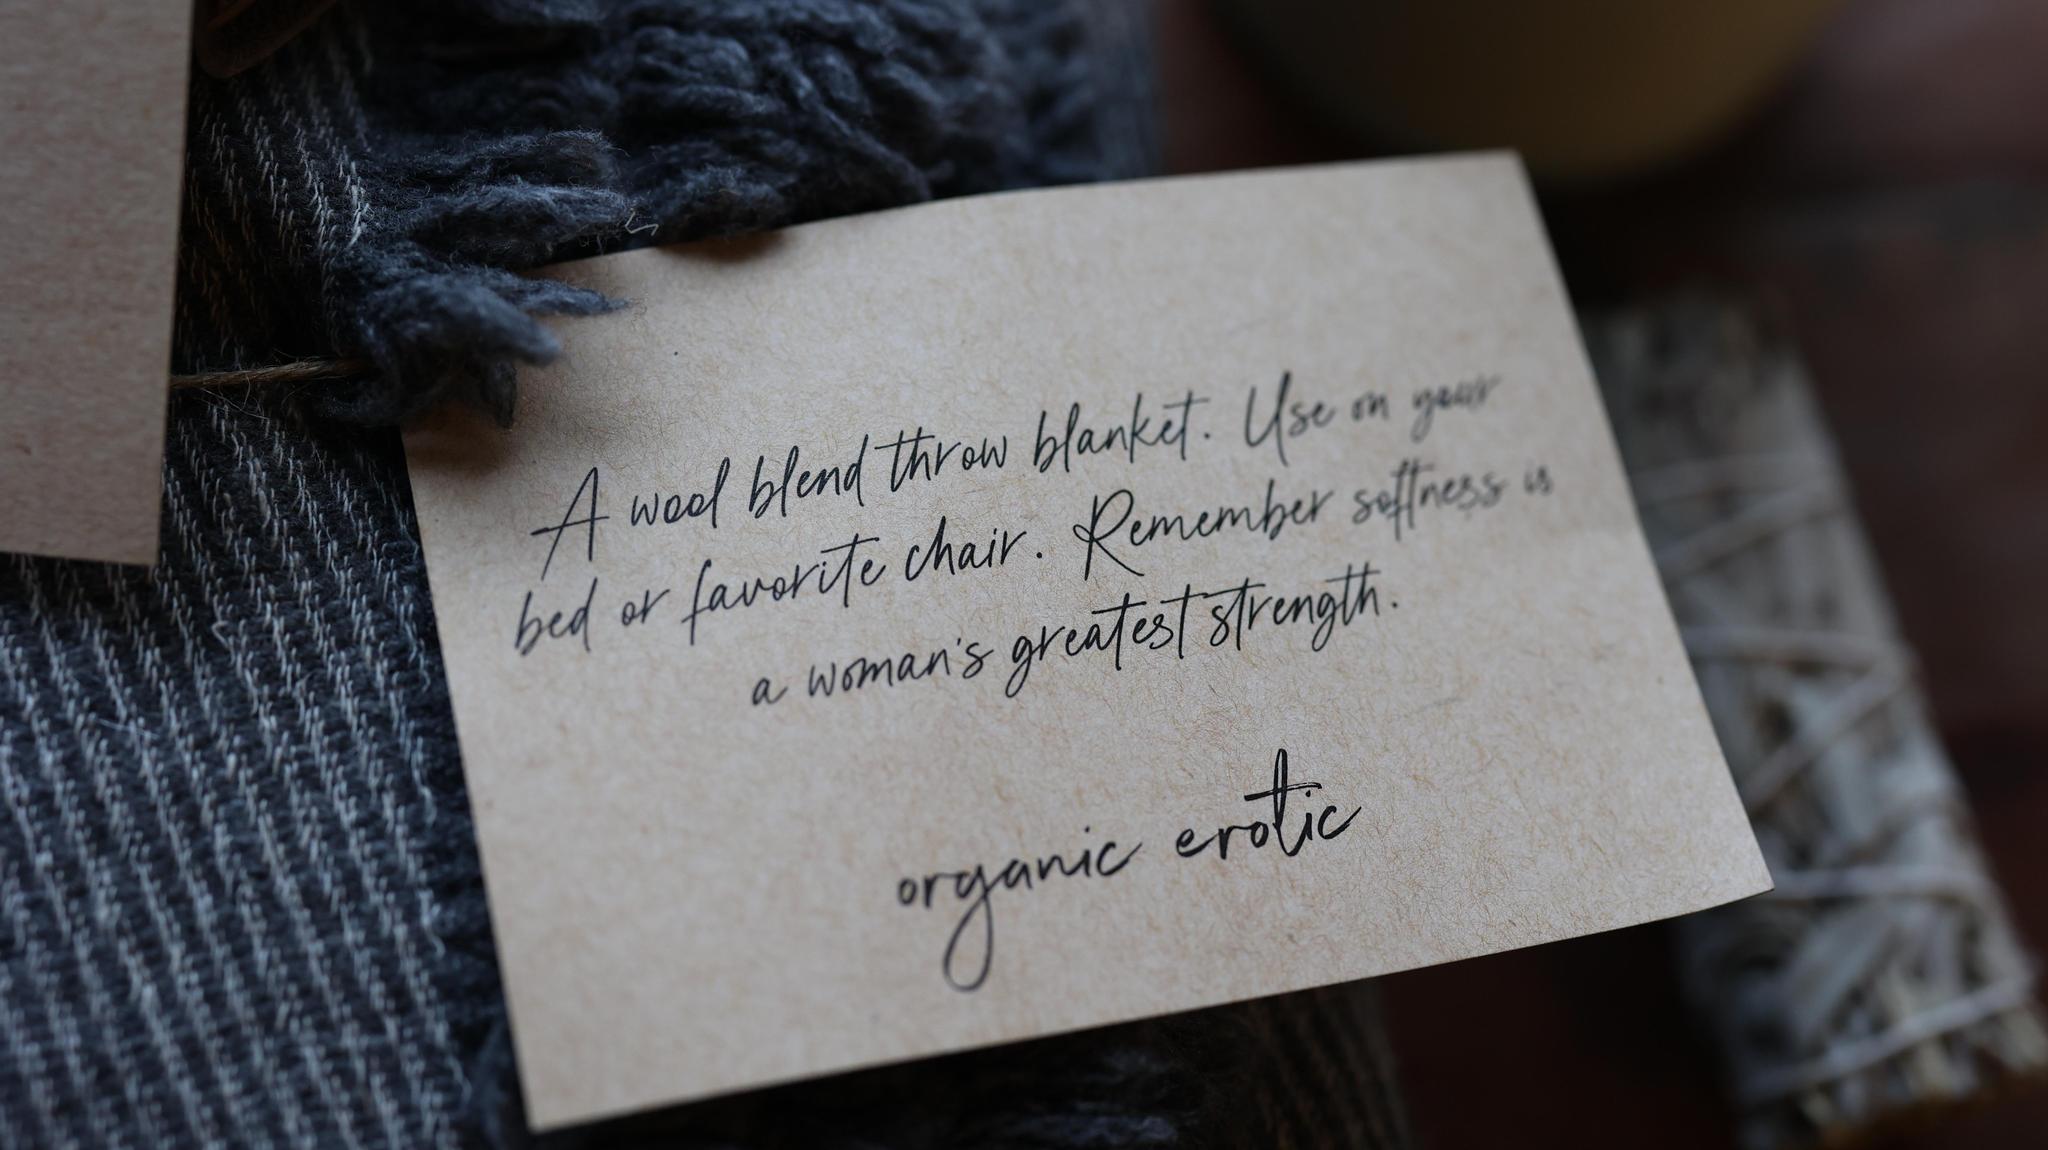 A wool blend throw blanket. Use on your
bed or favorite chair. Remember softness is
a woman's greatest strength.
organic erotic